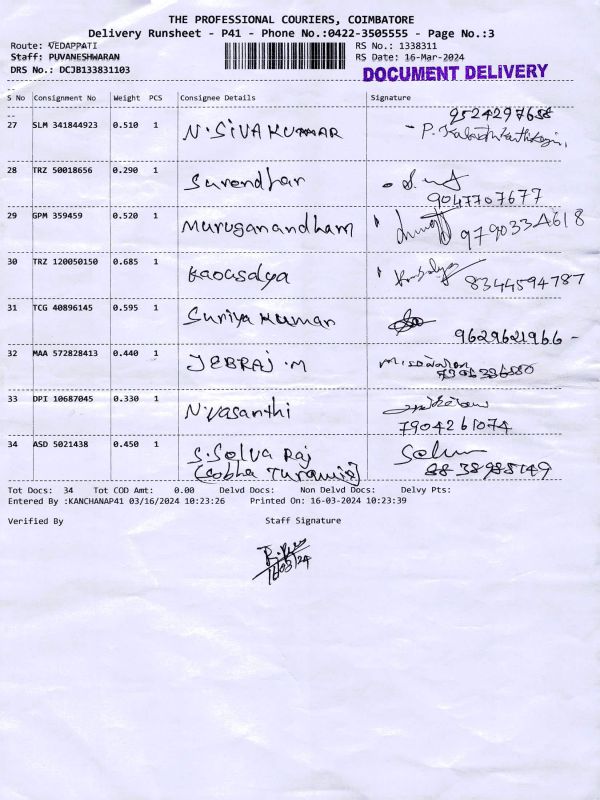 THE PROFESSIONAL COURIERS, COIMBATORE
Delivery Runsheet - P41 - Phone No.:0422-3505555 - Page No.:3
Route: VEDAPPATI RS No.: 1338311
Staff: PUVANESHWARAN RS Date: 16-Mar-2024
DRS No.: DCJB133831103 DOCUMENT DELIVERY
S No Consignment No Weight PCS Consignee Details Signature
9524297658
27 SLM 341844923 0.510 1 N.SIVAKUMAR
28 TRZ 50018656 0.290 1 Surendhar
9047707677
29 GPM 359459 0.520 1 Muruganandham 9790334618
30 TRZ 120050150 0.685 1 Kaousalya 8344594787
31 TCG 40896145 0.595 1 Suriya Kumar
9629621966 -
32 MAA 572828413 0.440 1 JEBRAJ.M
33 DPI 10687045 0.330 1 N.Vasanthi
7904261074
34 ASD 5021438 0.450 1 S.Solva Raj
Tot Docs: 34 Tot COD Amt: 0.00 Delvd Docs: Non Delvd Docs: Delvy Pts:
Entered By :KANCHANAP41 03/16/2024 10:23:26 Printed On: 16-03-2024 10:23:39
Verified By Staff Signature
16/03/24